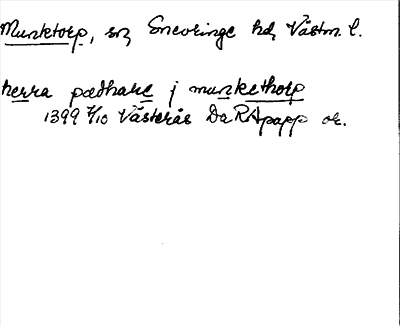 Munktorp, sn, Snevringe hd, Västm. l.
herra pædhare j munkethorp
1399 7/10 Västerås DaRApapp or.